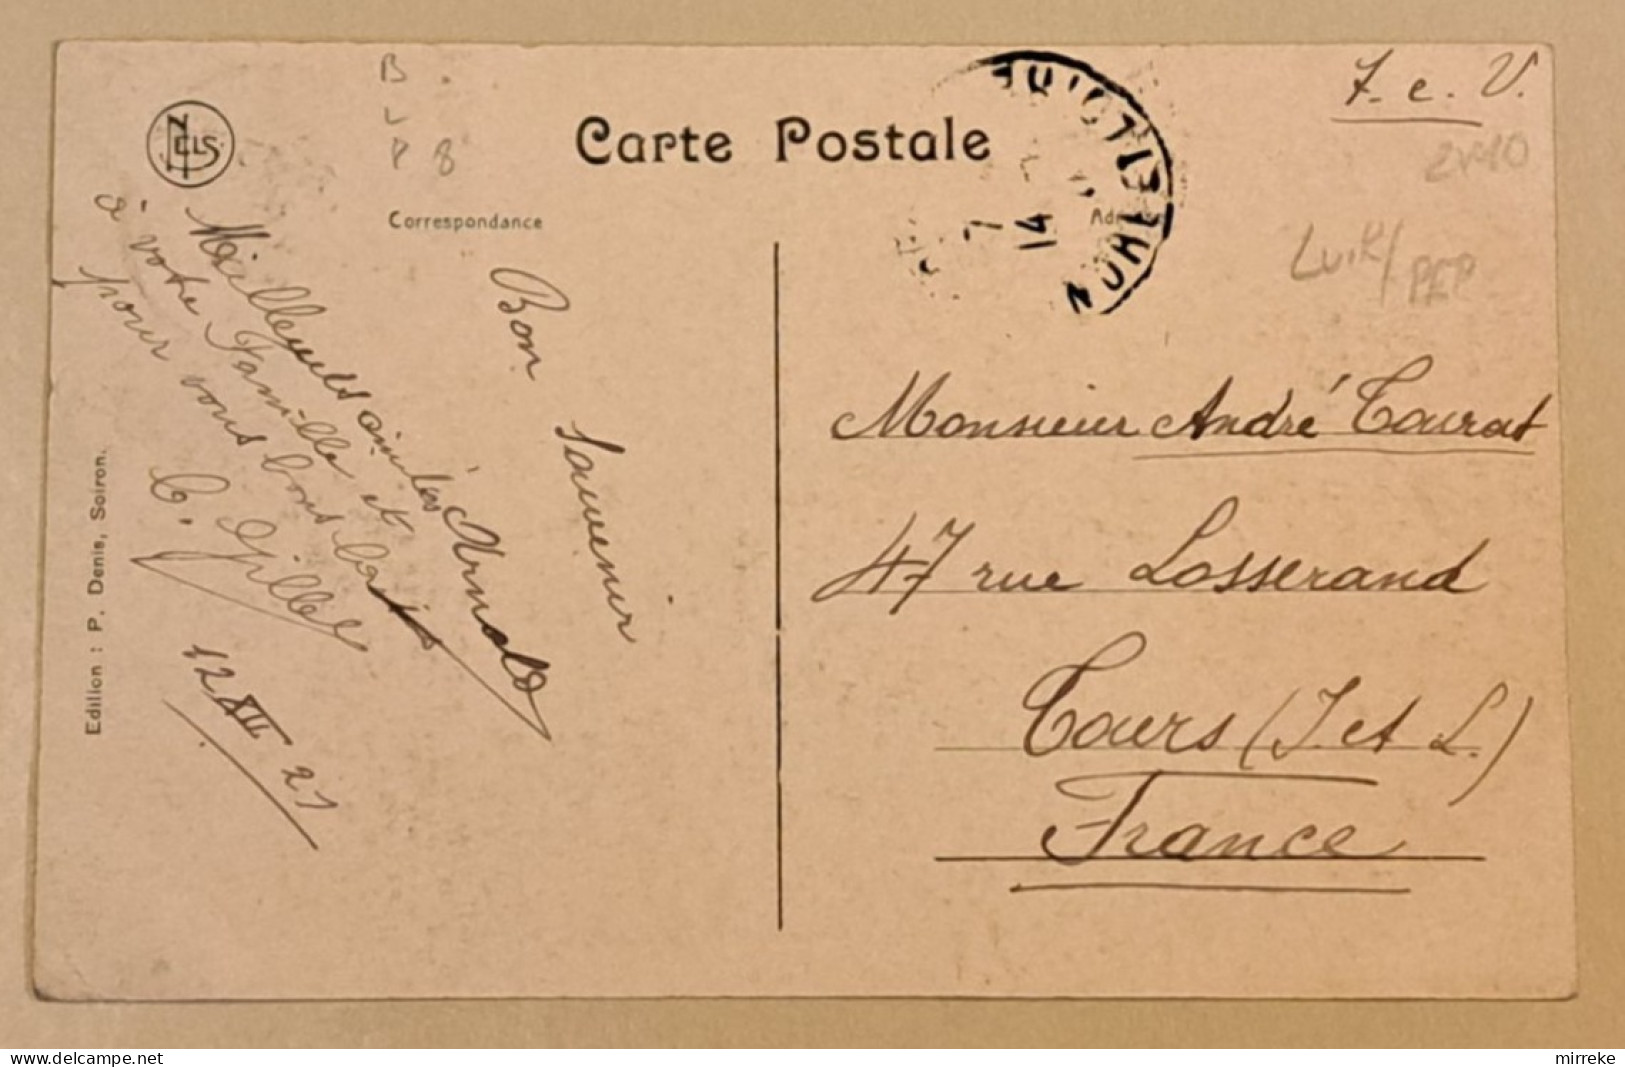 B.
L
P 8
NELS
Carte Postale
T. c. V.
Correspondance
Luik/
PEP
7
14
Bon Souvenir
Meilleures amitiés Arnold
à votre Famille et
pour vous bons baisers
C. Gilles
12 XII 21
Edition : P. Denis, Soiron.
Monsieur André Tourat
47 rue Losserand
Tours (I et L.)
France
delcampe.net
mirreke